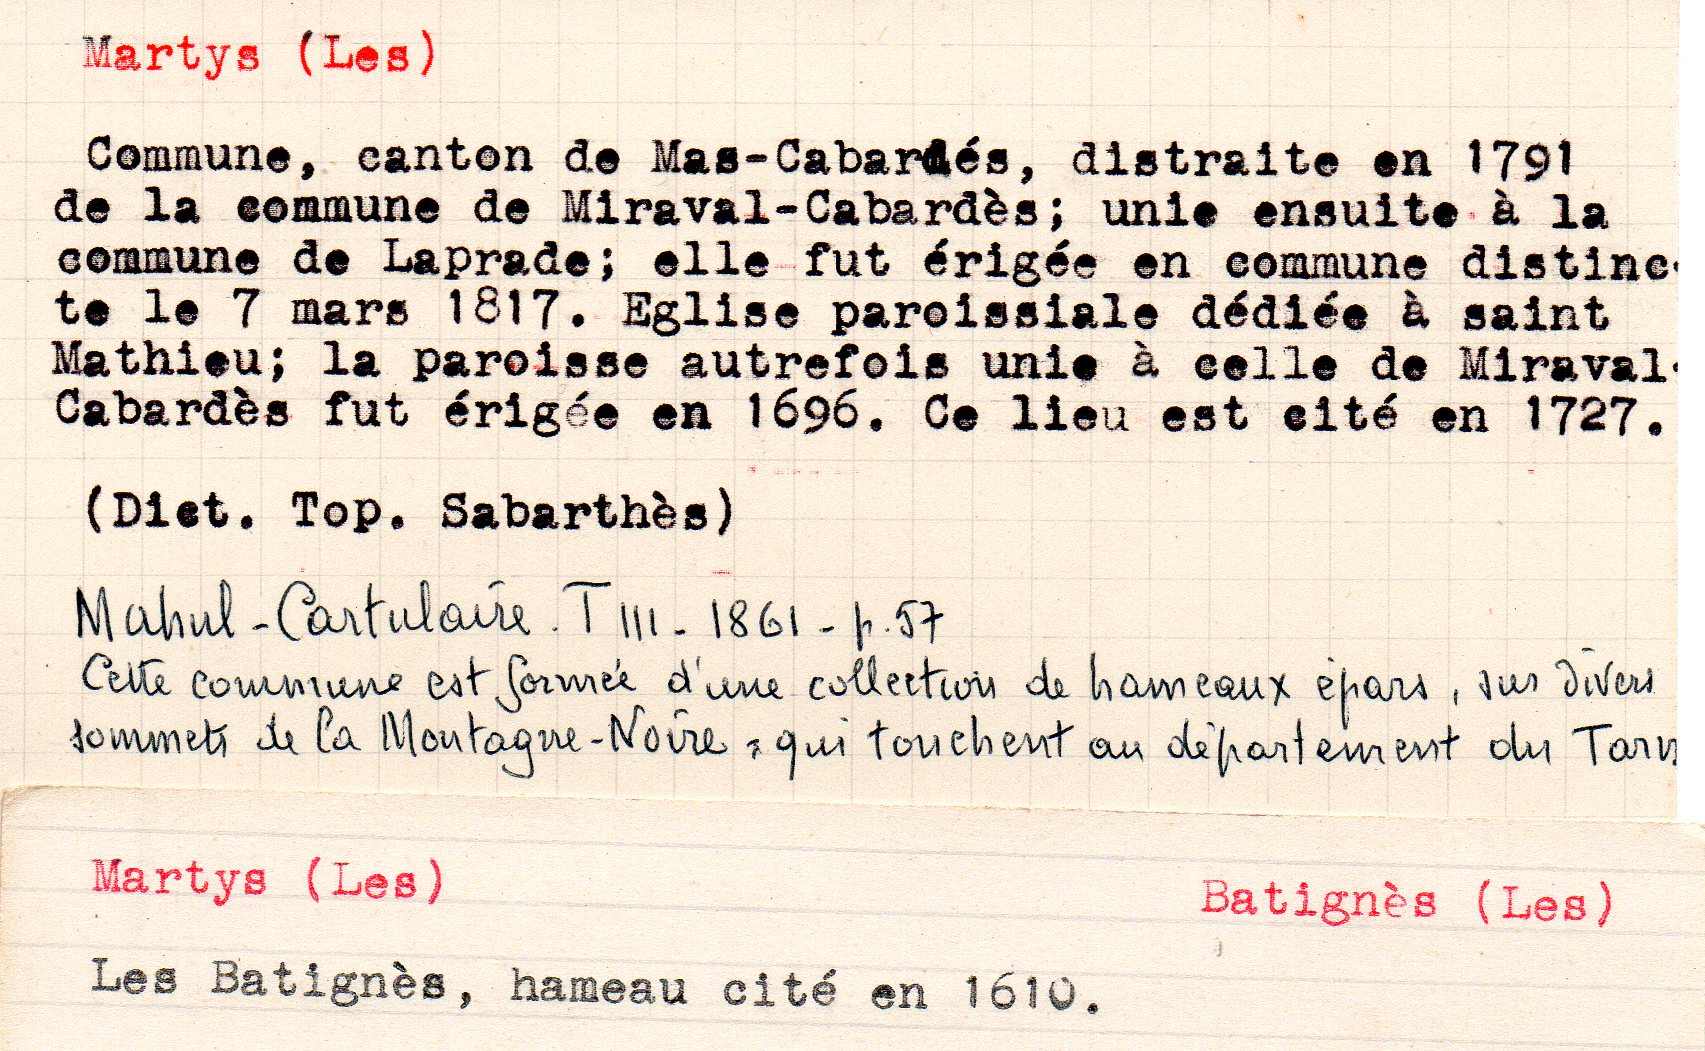 Martys (Les)
Commune, canton de Mas-Cabardés, distraite en 1791
de la commune de Miraval-Cabardès; unie ensuite à la
commune de Laprade; elle fut érigée en commune distinc-
te le 7 mars 1817. Eglise paroissiale dédiée à saint
Mathieu; la paroisse autrefois unie à celle de Miraval-
Cabardès fut érigée en 1696. Ce lieu est cité en 1727.
(Dict. Top. Sabarthès)
Mahul - Cartulaire. T III - 1861 - p. 57
Cette commune est formée d'une collection de hameaux épars, sur divers
sommets de la Montagne-Noire, qui touchent au département du Tarn
Martys (Les) Batignès (Les)
Les Batignès, hameau cité en 1610.